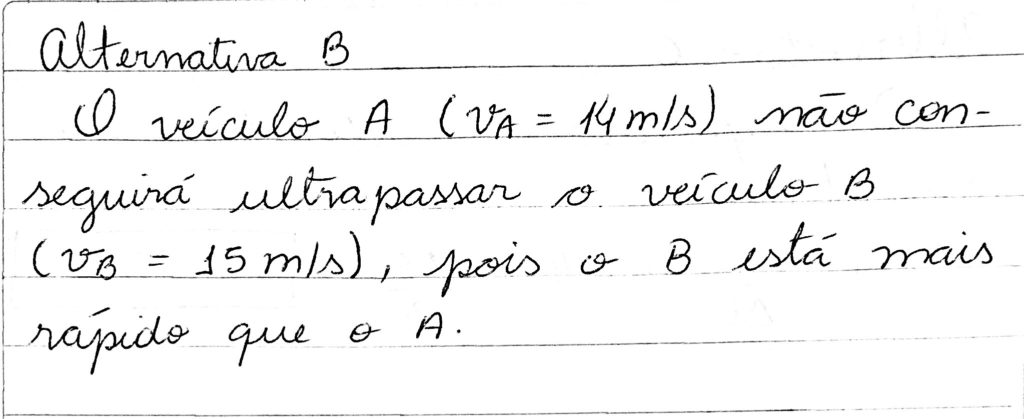 Alternativa B
O veículo A (vA = 14 m/s) não con-
seguirá ultrapassar o veículo B
(vB = 15 m/s), pois o B está mais
rápido que o A.